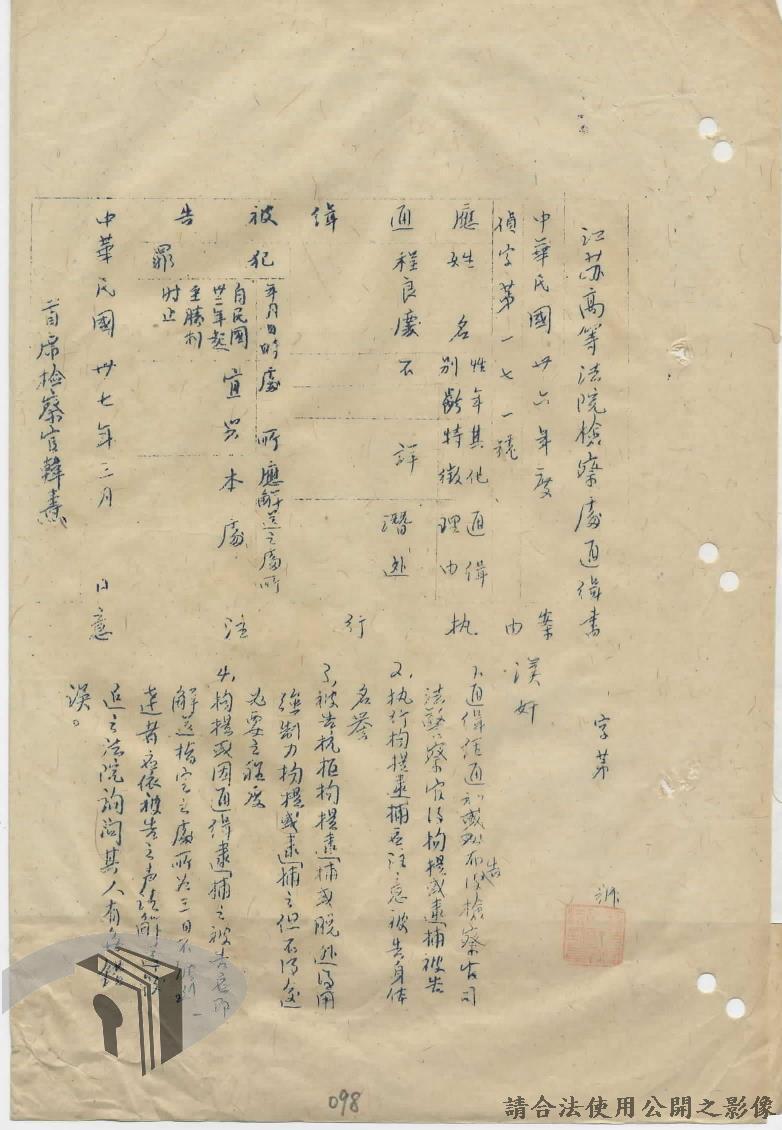 江苏高等法院檢察處通緝書
字第
號
中華民國卅六年度
偵字第一七一號
案由
漢奸
應
姓名
性別
年齡
其他特徵
通緝理由
通
程良慶
不詳
潛逃
緝
被
告
犯罪
年月日時
處所
應解送之處所
自民國
卅二年起
至勝利
时止
宜兴
本處
执行注意
1、通緝經通知或布告後檢察官司
法警察官得拘提或逮捕被告
2、执行拘提逮捕应注意被告身体
名誉
3、被告抗拒拘提逮捕或脱逃得用
強制力拘提或逮捕之但不得逾
必要之程度
4、拘提或因通緝逮捕之被告应即
解送指定之處所如三日不能到
達者应依被告之声請解送較
近之法院詢問其人有无錯
误。
中華民國卅七年三月
日
首席检察官韓燾
098
請合法使用公開之影像